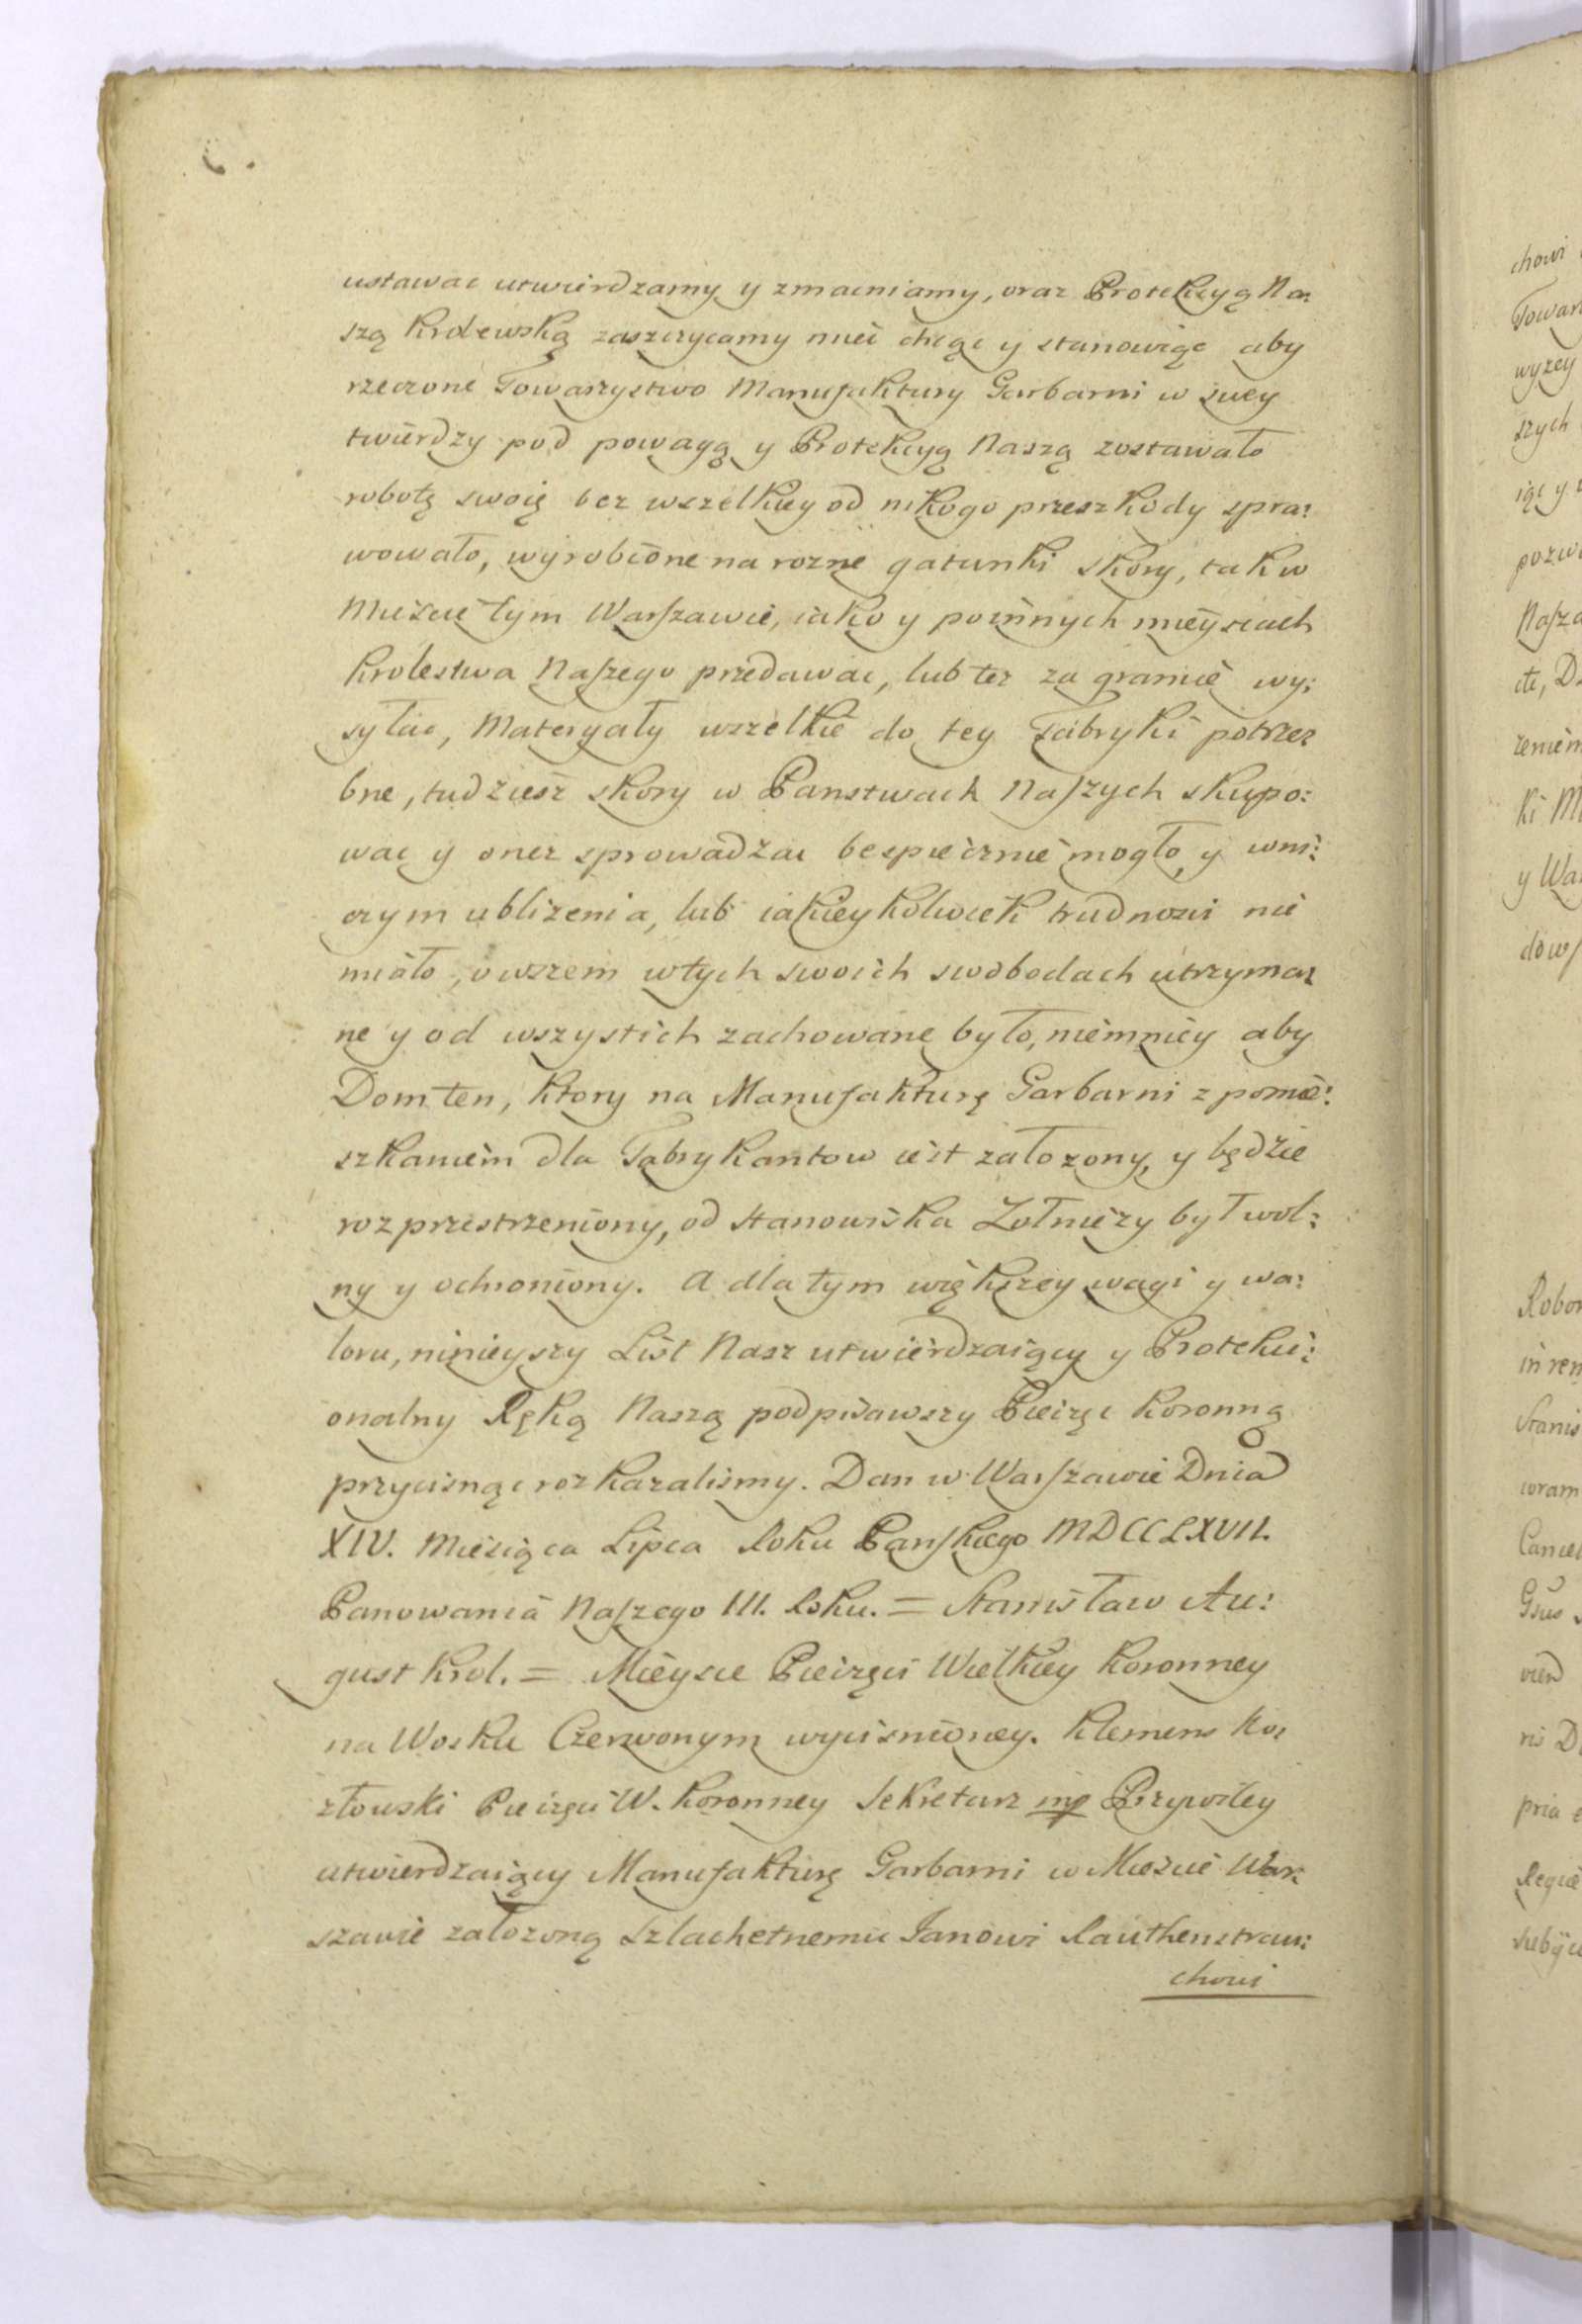 ustawac utwierdzamy y zmacniamy, oraz Protekcyą Na:
szą Krolewską zaszczycamy mieć chcąc y stanowiąc aby
rzeczone Towarzystwo Manufaktury Garbarni w swey
twierdzy pod powagą y Protekcyą Naszą zostawało
robotę swoię bez wszelkiey od nikogo przeszkody spra:
wowało, wyrobione na rozne gatunki skory, tak w
Miescie tym Warszawie, iako y po innych mieyscach
Krolestwa Naszego przedawac, lub tez za granice wy:
syłac, Materyały wszelkie do tey Fabryki potrze:
bne, tudziesz skory w Panstwach Naszych skupo:
wac y onez sprowadzac bespiecznie mogło, y wni:
czym ublizenia, lub iakieykolwiek trudnosci nie
miało, owszem wtych swoich swobodach utrzyma:
ne y od wszystich zachowane było, niemniey aby
Dom ten, ktory na Manufakturę Garbarni z pomie:
szkaniem dla Fabrykantow iest załozony, y będzie
rozprzestrzeniony, od stanowiska Zołnierzy był wol:
ny y ochroniony. A dla tym większey wagi y wa:
loru, ninieyszy List Nasz utwierdzaiący y Protekci:
onalny Ręką Naszą podpisawszy Pieczęc Koronną
przycisnąc rozkazalismy. Dan w Warszawie Dnia
XIV. Miesiąca Lipca Roku Panskiego MDCCLXVII.
Panowania Naszego III. Roku. = Stanisław Au:
gust Krol. = Mieysce Pieczęci Wielkiey Koronney
na Wosku Czerwonym wycisnioney. Klemens Ko:
złowski Pieczęci W. Koronney Sekretarz mp Przywiley
utwierdzaiący Manufakturę Garbarni w Miescie War:
szawie załozoną Szlachetnemu Janowi Rauthenstrau:
chowi